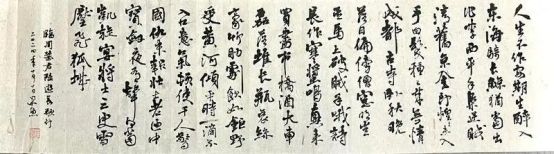 人生不作安期生醉入
東海騎長鯨猶當出
作李西平手梟逆賊
清舊京金印煌煌未入
手白髮種種來無情
成都古寺臥秋晚
落日偏傍僧窗明豈
其馬上破賊手哦詩
長作寒螿鳴興來
買盡市橋酒大車
磊落堆長瓶哀絲
豪竹助劇飲如鉅野
受黃河傾平時一滴不
入口意氣頓使千人驚
國仇未報壯士老匣中
寶劍夜有聲何當
凱旋宴將士三更雪
壓飛狐城
臨周慧珺陸游長歌行
二〇二四年一月一日